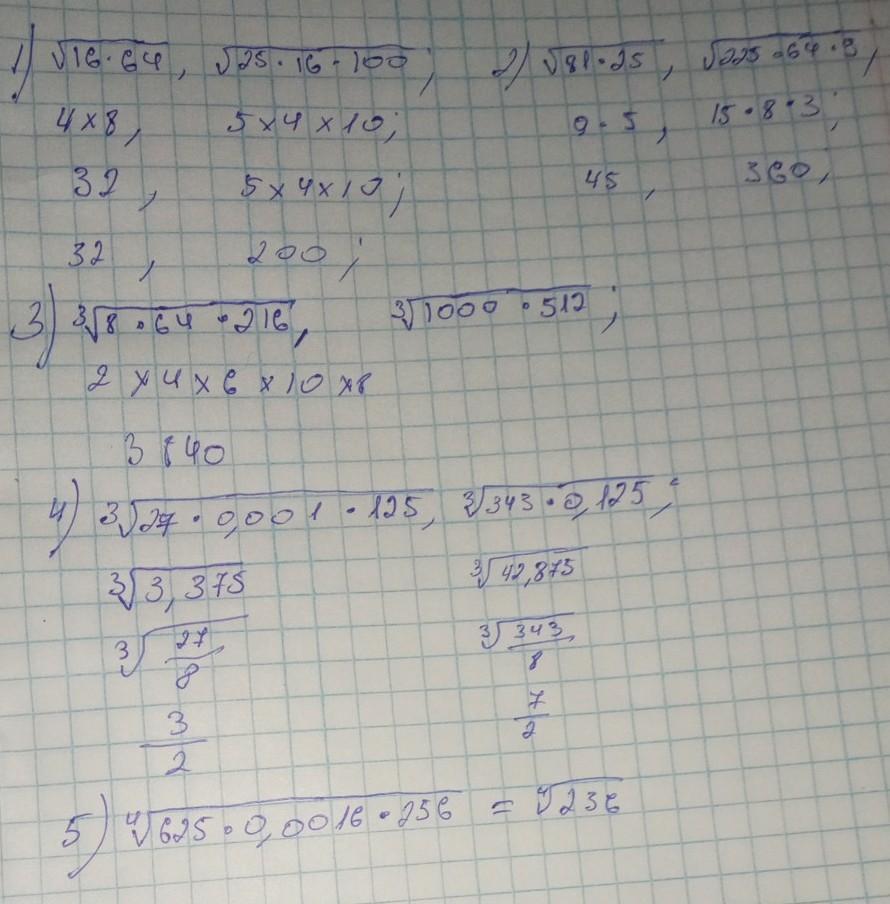 1) √16·64, √25·16·100; 2) √81·25, √225·64·9,
4×8, 5×4×10; 9·5, 15·8·3;
32, 5×4×10; 45, 360;
32, 200;
3) ∛8·64·216, ∛1000·512;
2×4×6×10×8
3840
4) ∛27·0,001·125, ∛343·0,125;
∛3,375 ∛42,875
∛27/8 ∛343/8
3/2 7/2
5) ∜625·0,0016·256 = ∜256